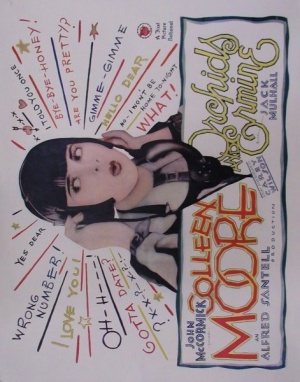 I TOLD YOU ONCE
BYE-BYE-HONEY!
ARE YOU PRETTY?
GIMME--GIMME
HELLO DEAR
NO-I WON'T BE
HOME TO-NIGHT
WHAT!
YES DEAR
WRONG
NUMBER!
I LOVE YOU!
OH-H---
GOTTA DATE?
JOHN
McCORMICK
COLLEEN
MOORE
Orchids
and
Ermine
JACK
MULHALL
CAREY
WILSON
AN
ALFRED SANTELL
PRODUCTION